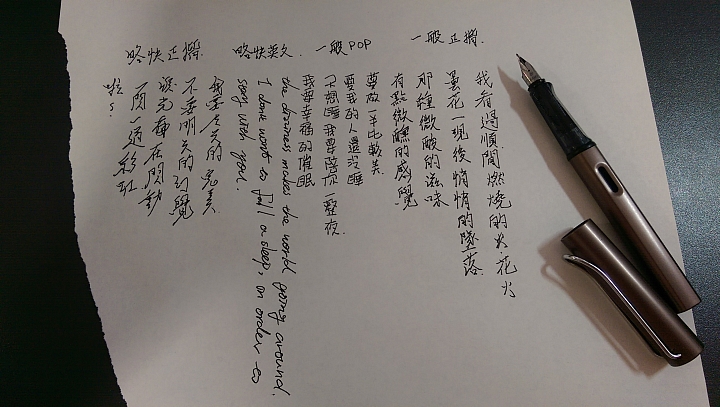 一般正楷.
我看過順間燃燒的火.花火
曇花一現後悄悄的墜落
那種微酸的滋味
有點微醺的感覺
一般POP
要放一半比較美
愛我的人還沒睡
不想睡我要陪你一整夜.
我要幸福的催眠
略快英文.
the dizziness makes the world going around.
I dont want to fall a sleep, in order to
song with you.
略快正楷.
我要今天的完美
不要明天的幻覺
流光都在閃動
一閃一過